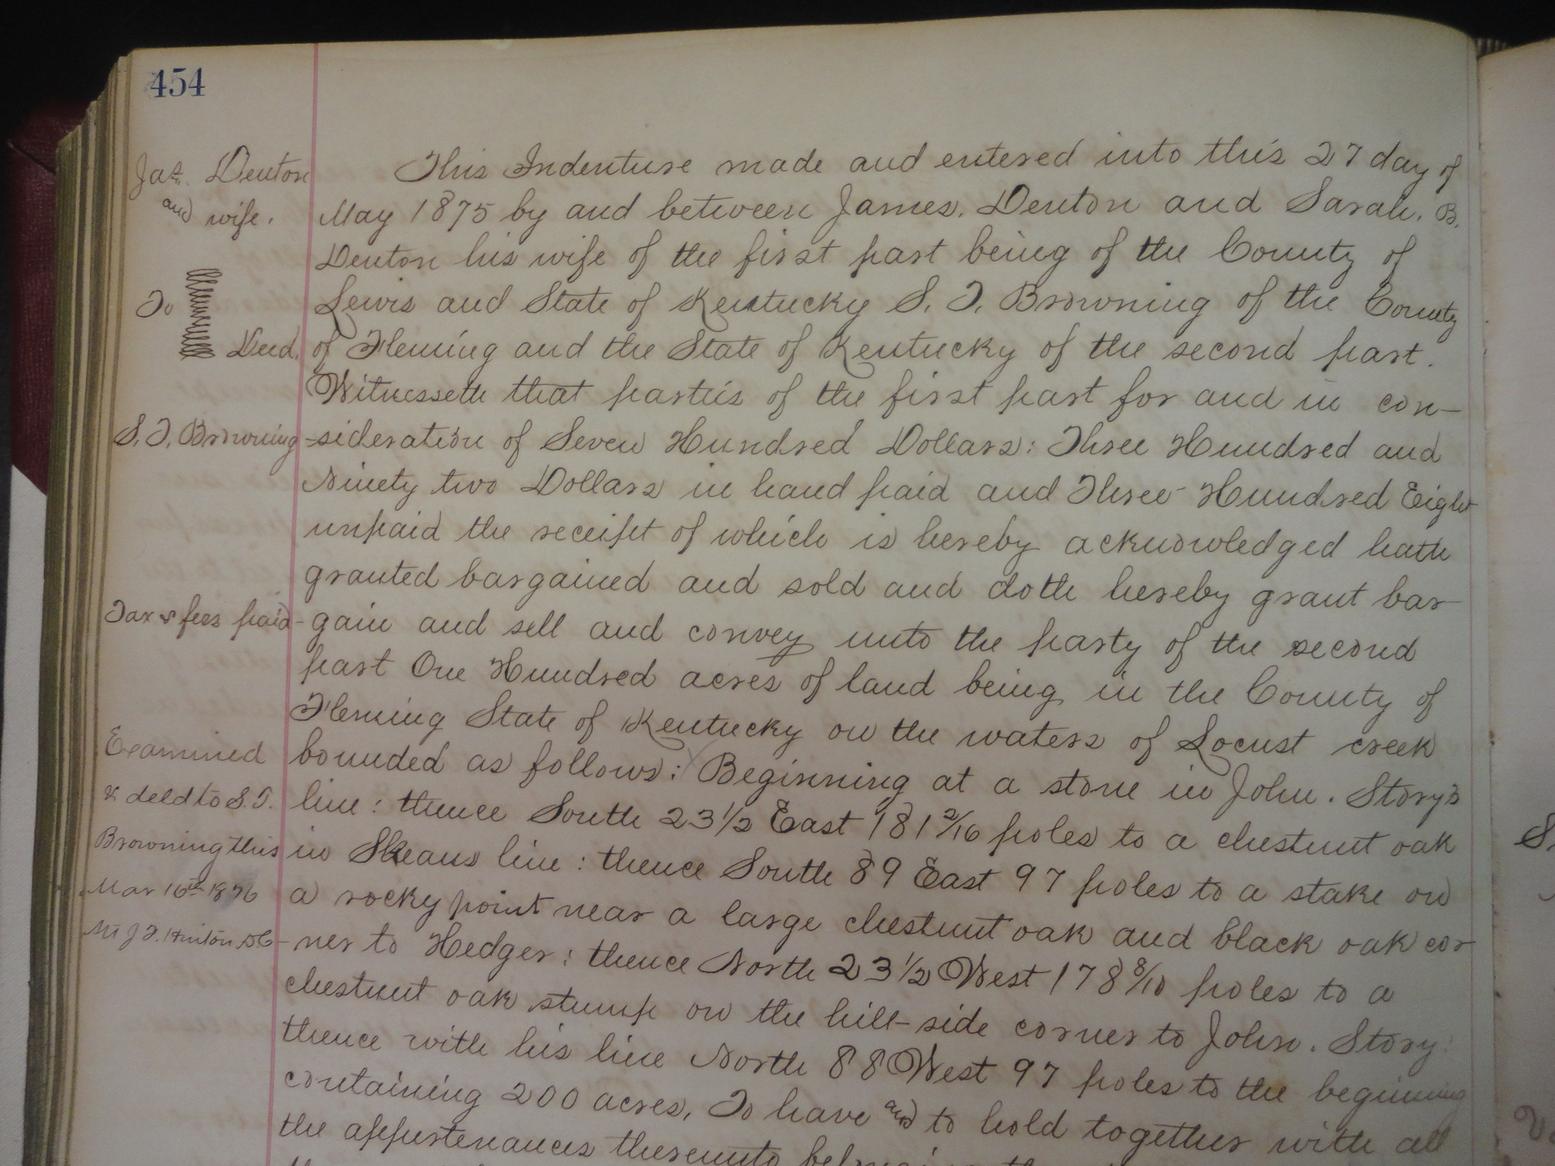 454
Jas. Denton
and wife.
To
Deed.
S. T. Browning
Tax & fees paid
Examined
& deld to S. T.
Browning this
Mar 16th 1876
J. T. Hinton, DC
This Indenture made and entered into this 27 day of
May 1875 by and between James. Denton and Sarah. B.
Denton his wife of the first part being of the County of
Lewis and State of Kentucky S. T. Browning of the County
of Fleming and the State of Kentucky of the second part.
Witnesseth that parties of the first part for and in con-
sideration of Seven Hundred Dollars: Three Hundred and
Ninety two Dollars in hand paid and Three Hundred Eight
unpaid the receipt of which is hereby acknowledged hath
granted bargained and sold and doth hereby grant bar-
gain and sell and convey unto the party of the second
part One Hundred acres of land being in the County of
Fleming State of Kentucky on the waters of Locust creek
bounded as follows: Beginning at a stone in John. Story's
line: thence South 23 1/2 East 181 2/10 poles to a chestnut oak
in Skeans line: thence South 89 East 97 poles to a stake on
a rocky point near a large chestnut oak and black oak cor-
ner to Hedger: thence North 23 1/2 West 178 8/10 poles to a
chestnut oak stump on the hill-side corner to John. Story:
thence with his line North 88 West 97 poles to the beginning
containing 200 acres. To have and to hold together with all
the appurtenances thereunto
S.